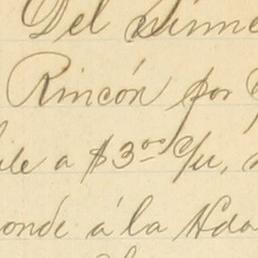 Del núme
Rincón por
ile a $3.00 c/u,
onde á la Hda